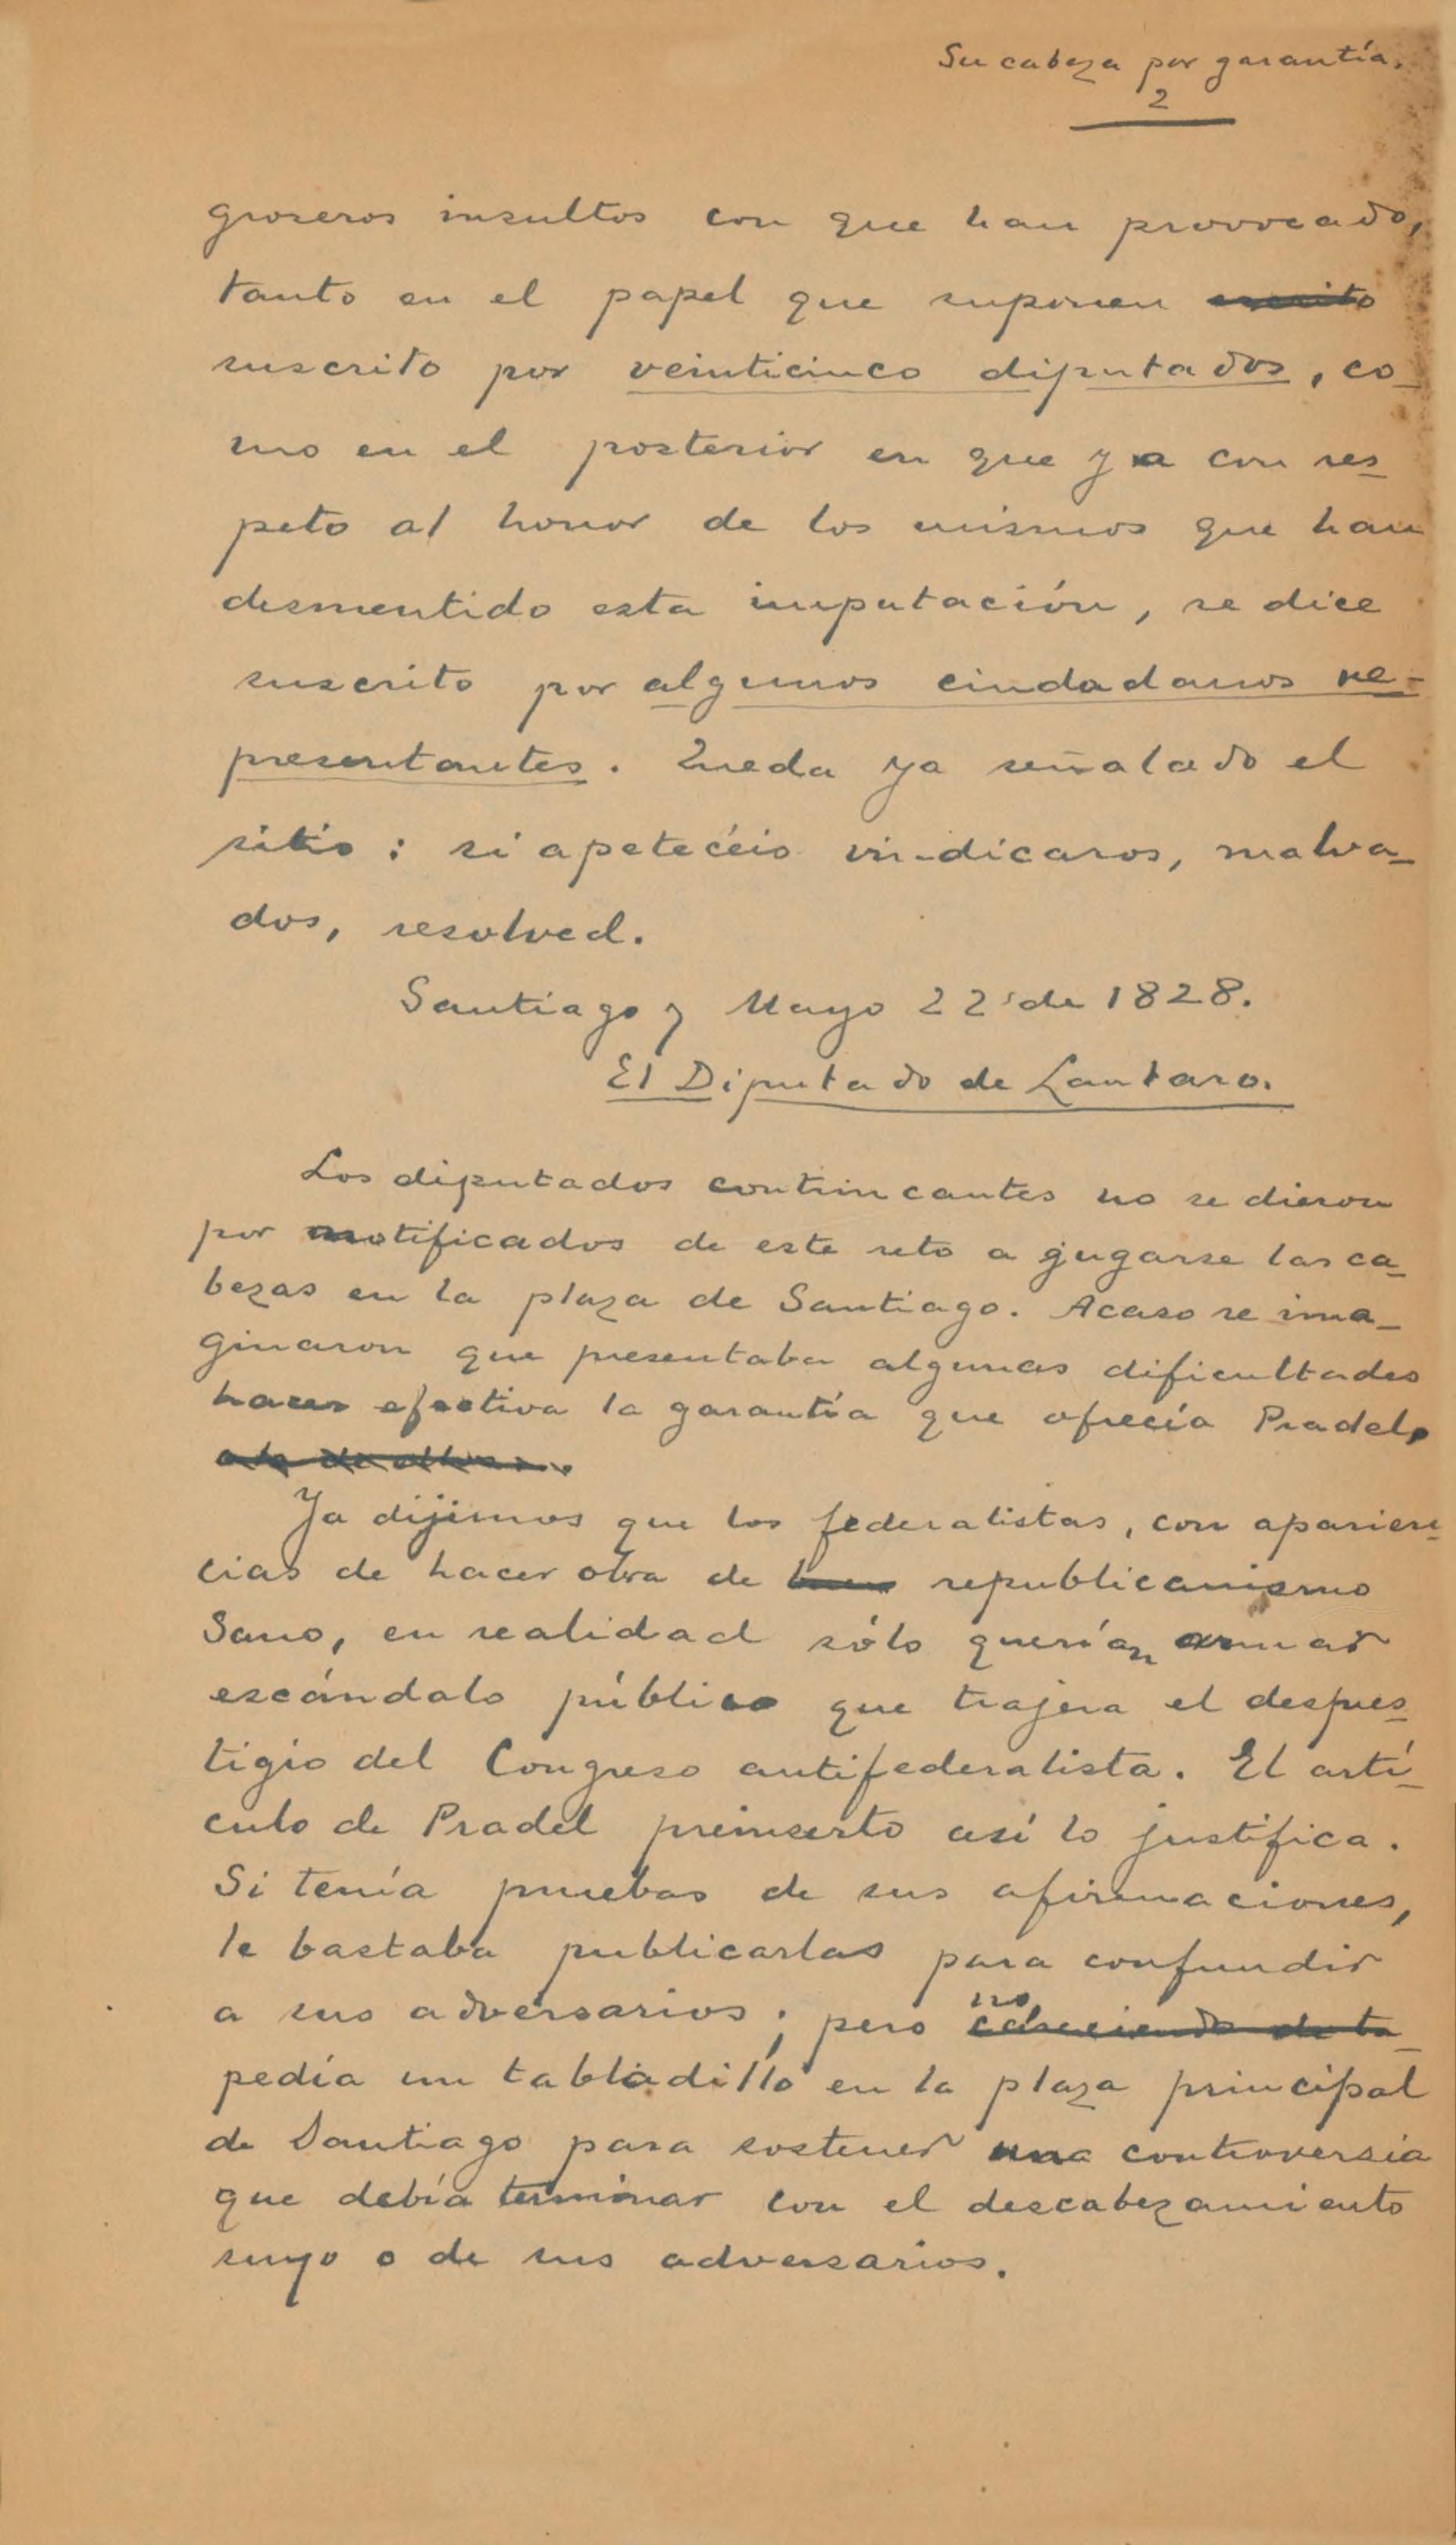 Su cabeza por garantía.
2
groseros insultos con que han provocado,
tanto en el papel que suponen escrito
suscrito por veinticinco diputados, co-
mo en el posterior en que ya con res-
peto al honor de los mismos que han
desmentido esta imputación, se dice
suscrito por algunos ciudadanos re-
presentantes. Queda ya señalado el
sitio: si apetecéis vindicaros, malva-
dos, resolved.
Santiago y Mayo 22 de 1828.
El Diputado de Lautaro.
Los diputados contrincantes no se dieron
por notificados de este reto a jugarse las ca-
bezas en la plaza de Santiago. Acaso se ima-
ginaron que presentaba algunas dificultades
hacer efectiva la garantía que ofrecía Pradel.
Ya dijimos que los federalistas, con aparien-
cias de hacer obra de buen republicanismo
sano, en realidad sólo querían armar
escándalo público que trajera el despres-
tigio del Congreso antifederalista. El artí-
culo de Pradel preinserto así lo justifica.
Si tenía pruebas de sus afirmaciones,
le bastaba publicarlas para confundir
a sus adversarios; pero no,
pedía un tabladillo en la plaza principal
de Santiago para sostener una controversia
que debía terminar con el descabezamiento
suyo o de sus adversarios.